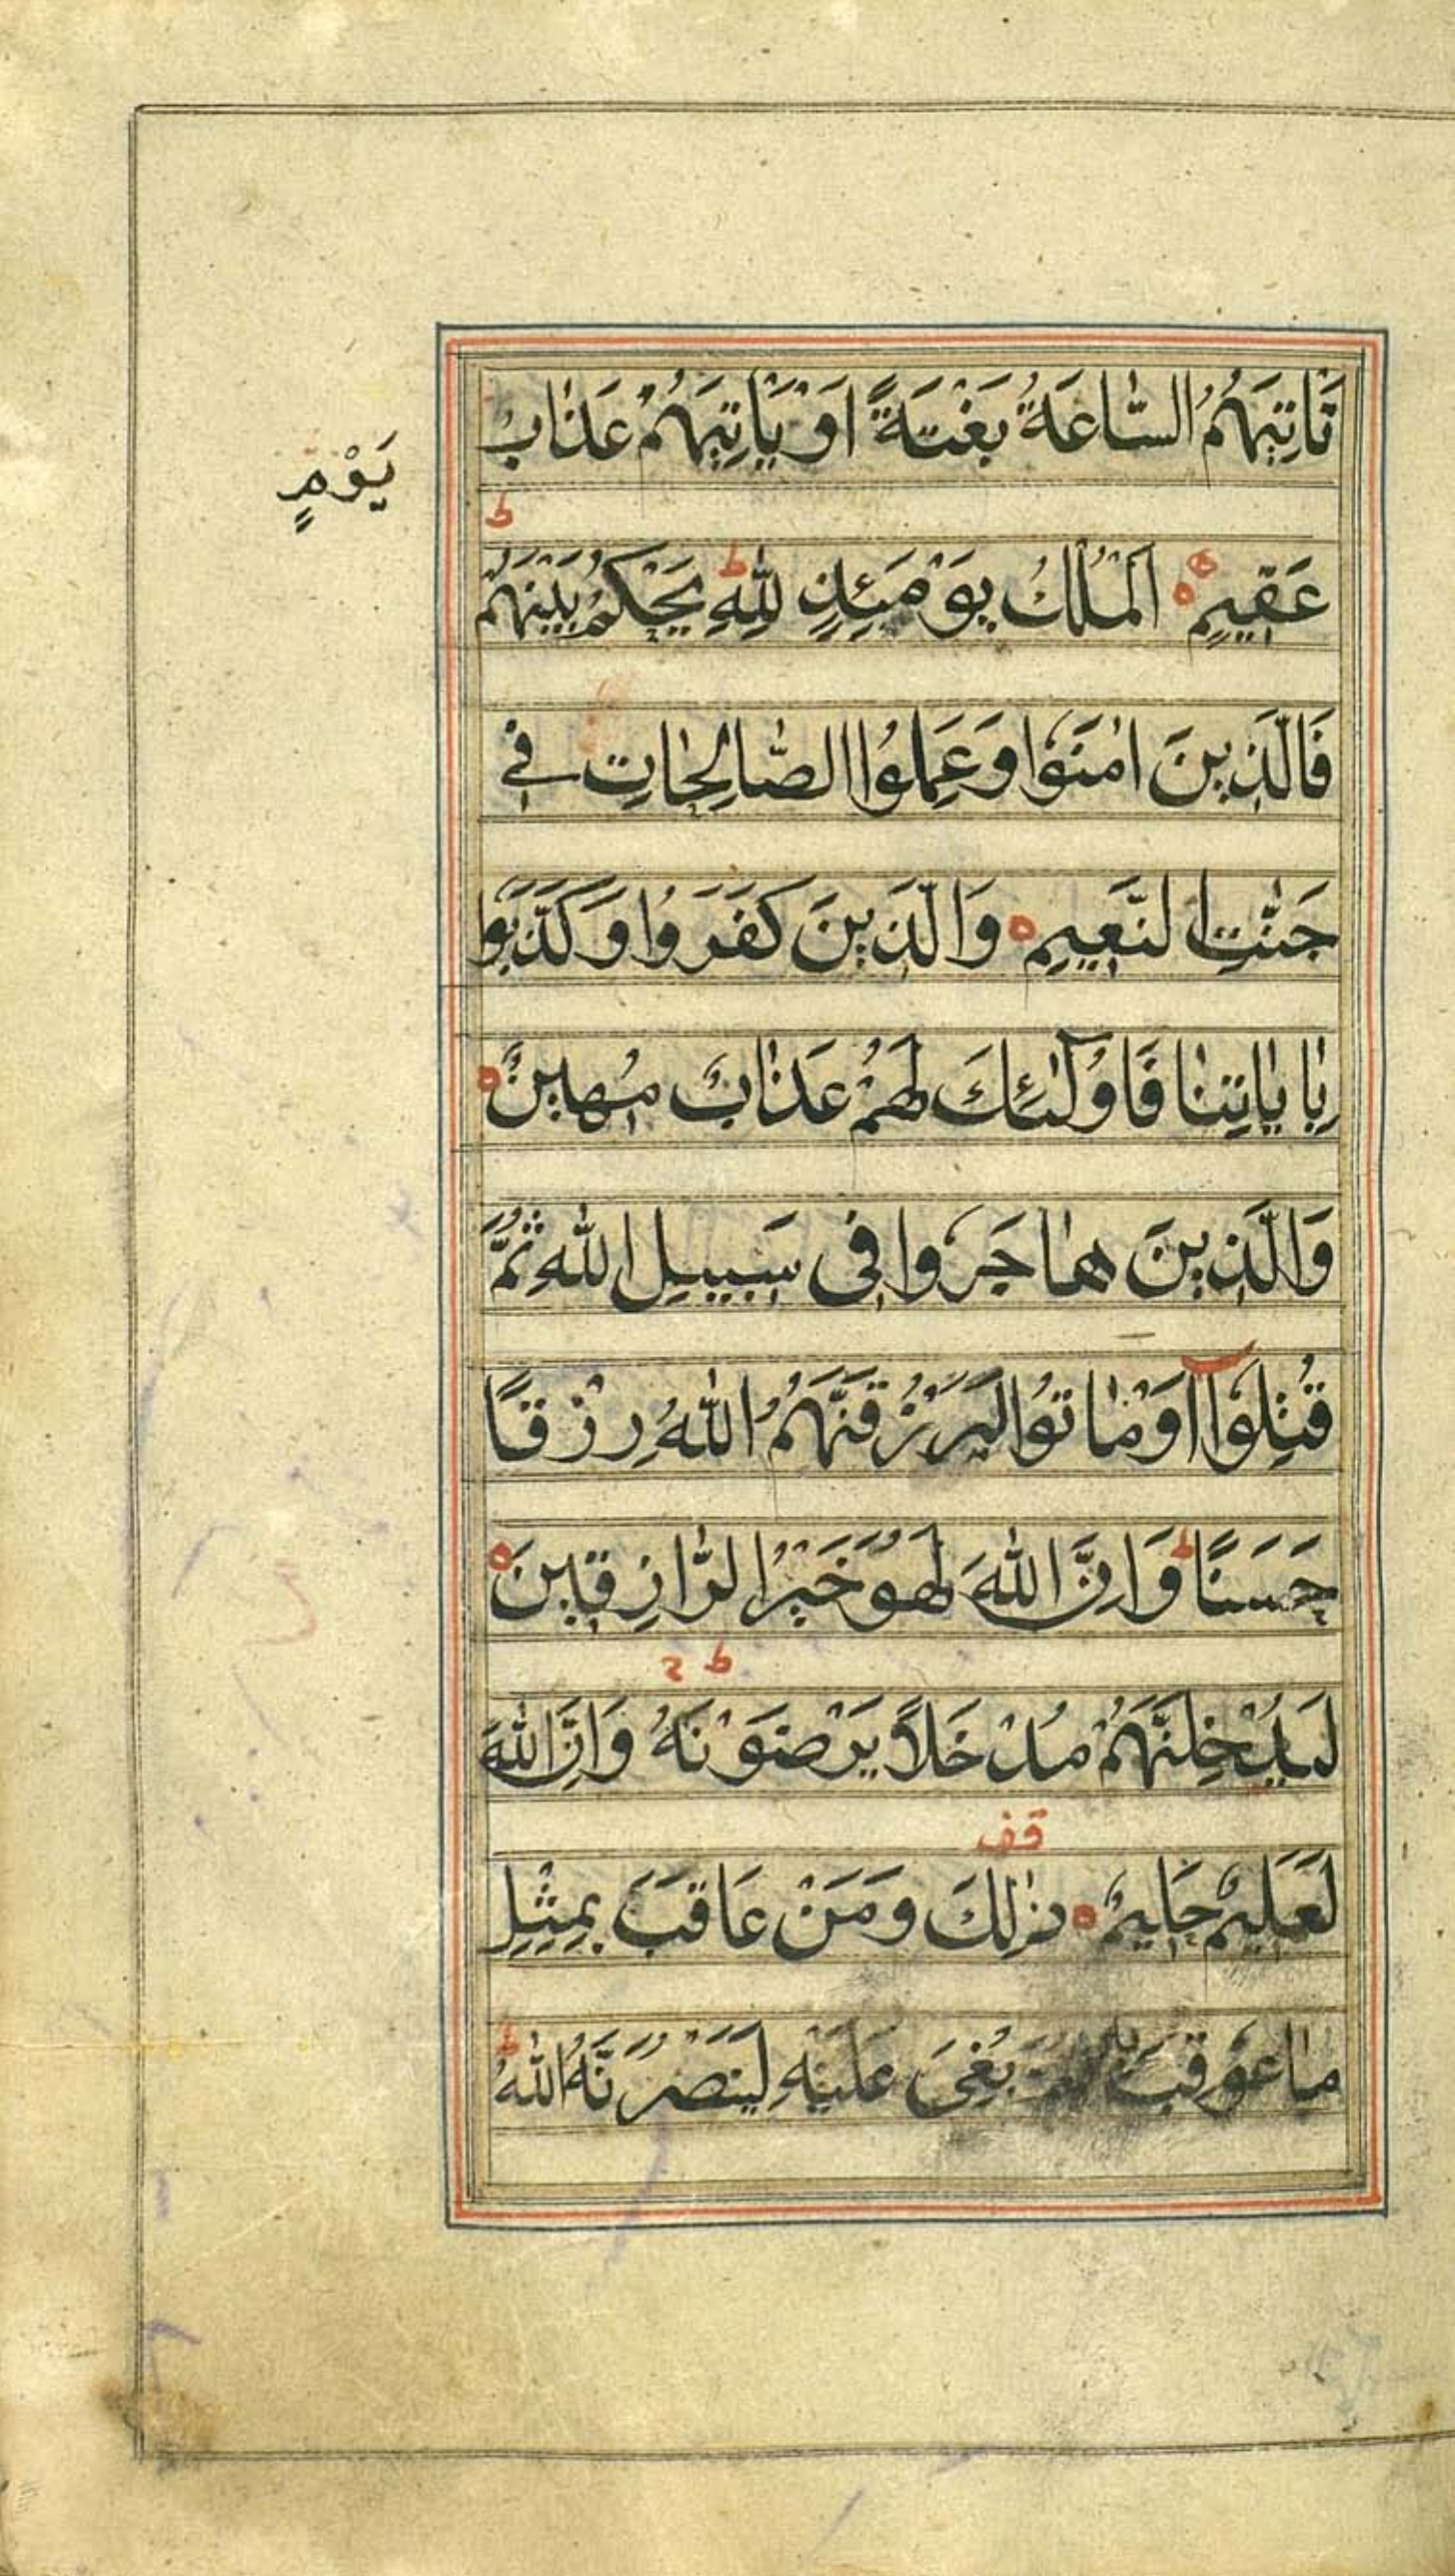 تَاْتِيَهُمُ السَّاعَةُ بَغْتَةً اَوْ يَاْتِيَهُمْ عَذَابُ
يَوْمٍ
ط
عَقِيمٍ ه اَلْمُلْكُ يَوْمَئِذٍ لِلّٰهِ ط يَحْكُمُ بَيْنَهُمْ
فَالَّذِينَ اٰمَنُوا وَعَمِلُوا الصَّالِحَاتِ فِي
جَنّٰتِ النَّعِيمِ ه وَالَّذِينَ كَفَرُوا وَكَذَّبُوا
بِاٰيَاتِنَا فَاُولٰئِكَ لَهُمْ عَذَابٌ مُهِينٌ ه
وَالَّذِينَ هَاجَرُوا فِى سَبِيلِ اللّٰهِ ثُمَّ
قُتِلُوٓا اَوْ مَاتُوا لَيَرْزُقَنَّهُمُ اللّٰهُ رِزْقًا
حَسَنًا ط وَاِنَّ اللّٰهَ لَهُوَ خَيْرُ الرَّازِقِينَ ه
ط
لَيُدْخِلَنَّهُمْ مُدْخَلًا يَرْضَوْنَهُ وَاِنَّ اللّٰهَ
قف
لَعَلِيمٌ حَلِيمٌ ه ذٰلِكَ وَمَنْ عَاقَبَ بِمِثْلِ
مَا عُوقِبَ بُغِىَ عَلَيْهِ لَيَنْصُرَنَّهُ اللّٰهُ ط